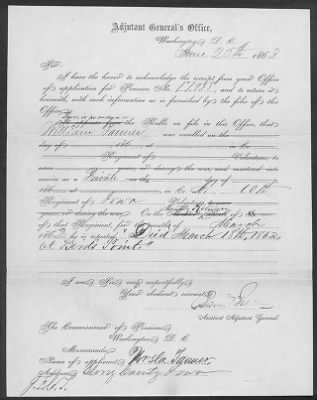 Adjutant General's Office,
Washington, D. C.
June 25th, 1863
Sir:
I have the honor to acknowledge the receipt from your Office
of application for Pension No. and to return it
herewith, with such information as is furnished by the files of this
Office.
the Rolls on file in this Office, that
William was enrolled on the
day of 186 at in
Regiment of Volunteers, to
serve years, or during the war, and mustered into
service as a Private on the day of
186 at in Co. 10th
Regiment of Iowa Volunteers, to serve
years, or during the war. On the Muster Roll of Co.
of that Regiment, for the months of March
1862 he is reported, "Died March 18th, 1862
at Bird's Point."
I am, Sir, very respectfully,
Your obedient servant,
Assistant Adjutant General.
The Commissioner of Pensions
Washington, D. C.
Memoranda:
Name of applicant, Tanner
Address, County Iowa